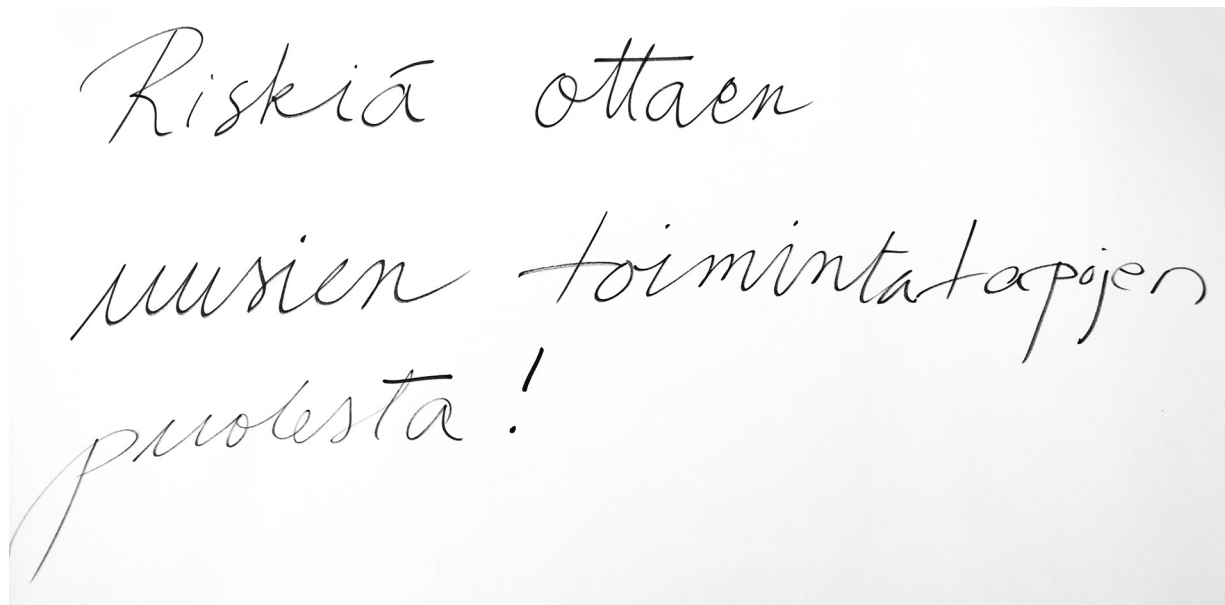 Riskiä ottaen
uusien toimintatapojen
puolesta!